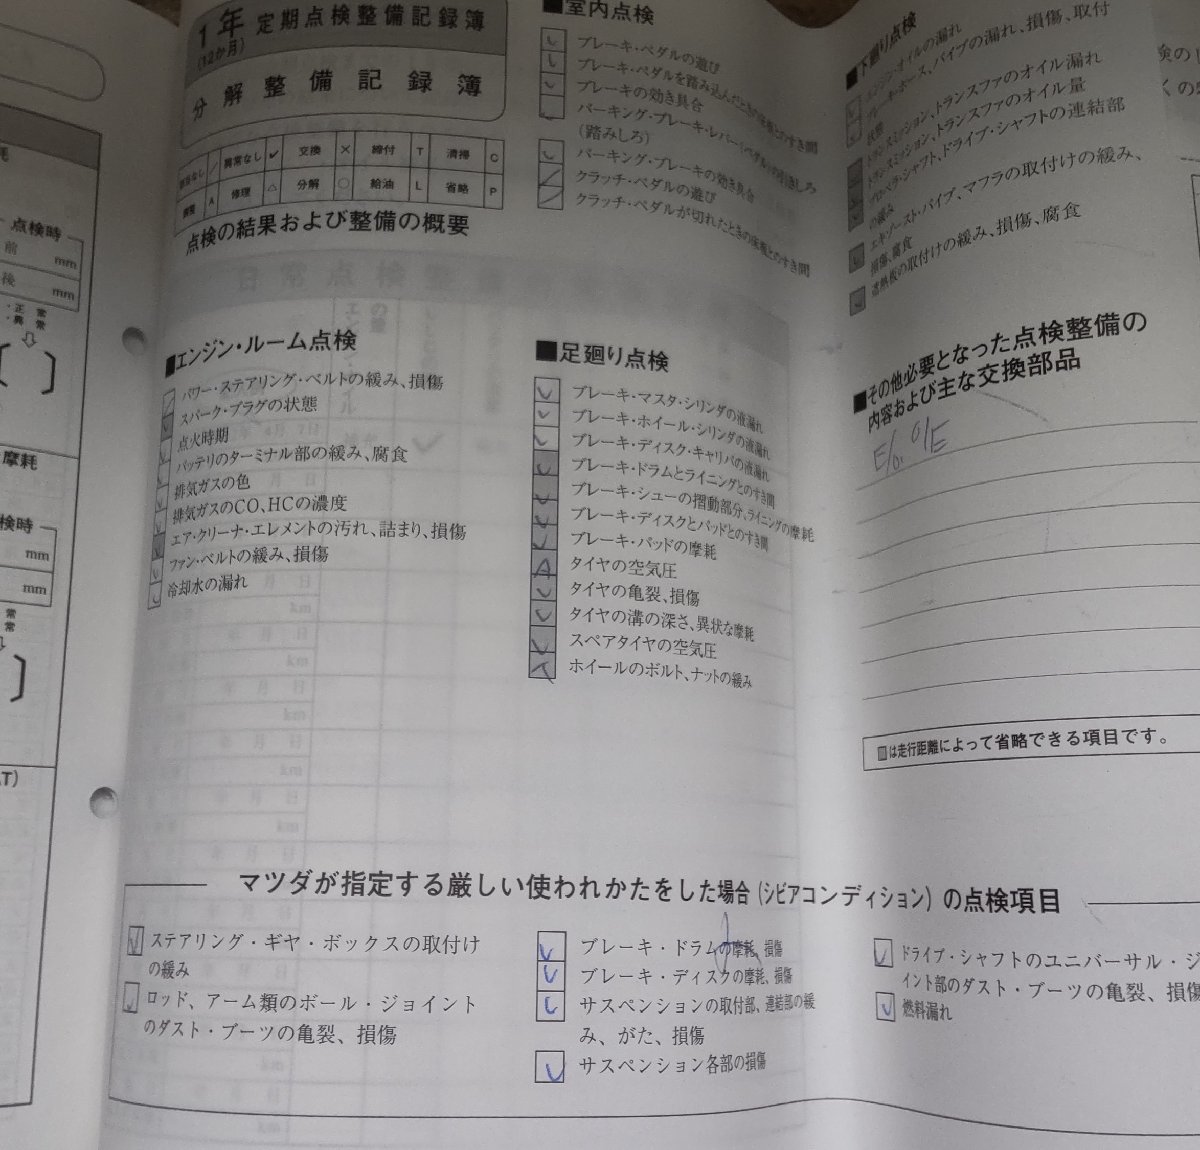 1年 定期点検整備記録簿
(12か月)
分解整備記録簿
該当なし ／ 異常なし ✓ 交換 × 締付 T 清掃 C
調整 A 修理 △ 分解 ○ 給油 L 省略 P
点検の結果および整備の概要
■エンジン・ルーム点検
パワー・ステアリング・ベルトの緩み、損傷
スパーク・プラグの状態
点火時期
バッテリのターミナル部の緩み、腐食
排気ガスの色
排気ガスのCO、HCの濃度
エア・クリーナ・エレメントの汚れ、詰まり、損傷
ファン・ベルトの緩み、損傷
冷却水の漏れ
■室内点検
ブレーキ・ペダルの遊び
ブレーキ・ペダルを踏み込んだときの床板とのすき間
ブレーキの効き具合
パーキング・ブレーキ・レバー(ペダル)の引きしろ
(踏みしろ)
パーキング・ブレーキの効き具合
クラッチ・ペダルの遊び
クラッチ・ペダルが切れたときの床板とのすき間
■足廻り点検
ブレーキ・マスタ・シリンダの液漏れ
ブレーキ・ホイール・シリンダの液漏れ
ブレーキ・ディスク・キャリパの液漏れ
ブレーキ・ドラムとライニングとのすき間
ブレーキ・シューの摺動部分、ライニングの摩耗
ブレーキ・ディスクとパッドとのすき間
ブレーキ・パッドの摩耗
A タイヤの空気圧
タイヤの亀裂、損傷
タイヤの溝の深さ、異状な摩耗
スペアタイヤの空気圧
T ホイールのボルト、ナットの緩み
■下廻り点検
エンジン・オイルの漏れ
ブレーキ・ホース、パイプの漏れ、損傷、取付
状態
トランスミッション、トランスファのオイル漏れ
トランスミッション、トランスファのオイル量
プロペラ・シャフト、ドライブ・シャフトの連結部
の緩み
エキゾースト・パイプ、マフラの取付けの緩み、
損傷、腐食
遮熱板の取付けの緩み、損傷、腐食
■その他必要となった点検整備の
内容および主な交換部品
E/o. o/E
は走行距離によって省略できる項目です。
マツダが指定する厳しい使われかたをした場合(シビアコンディション)の点検項目
ステアリング・ギヤ・ボックスの取付け
の緩み
ロッド、アーム類のボール・ジョイント
のダスト・ブーツの亀裂、損傷
ブレーキ・ドラムの摩耗、損傷
ブレーキ・ディスクの摩耗、損傷
サスペンションの取付部、連結部の緩
み、がた、損傷
サスペンション各部の損傷
ドライブ・シャフトのユニバーサル・ジ
イント部のダスト・ブーツの亀裂、損傷
燃料漏れ
点検時
前 mm
後 mm
・正常
・異常
摩耗
検時
mm
mm
常
常
T)